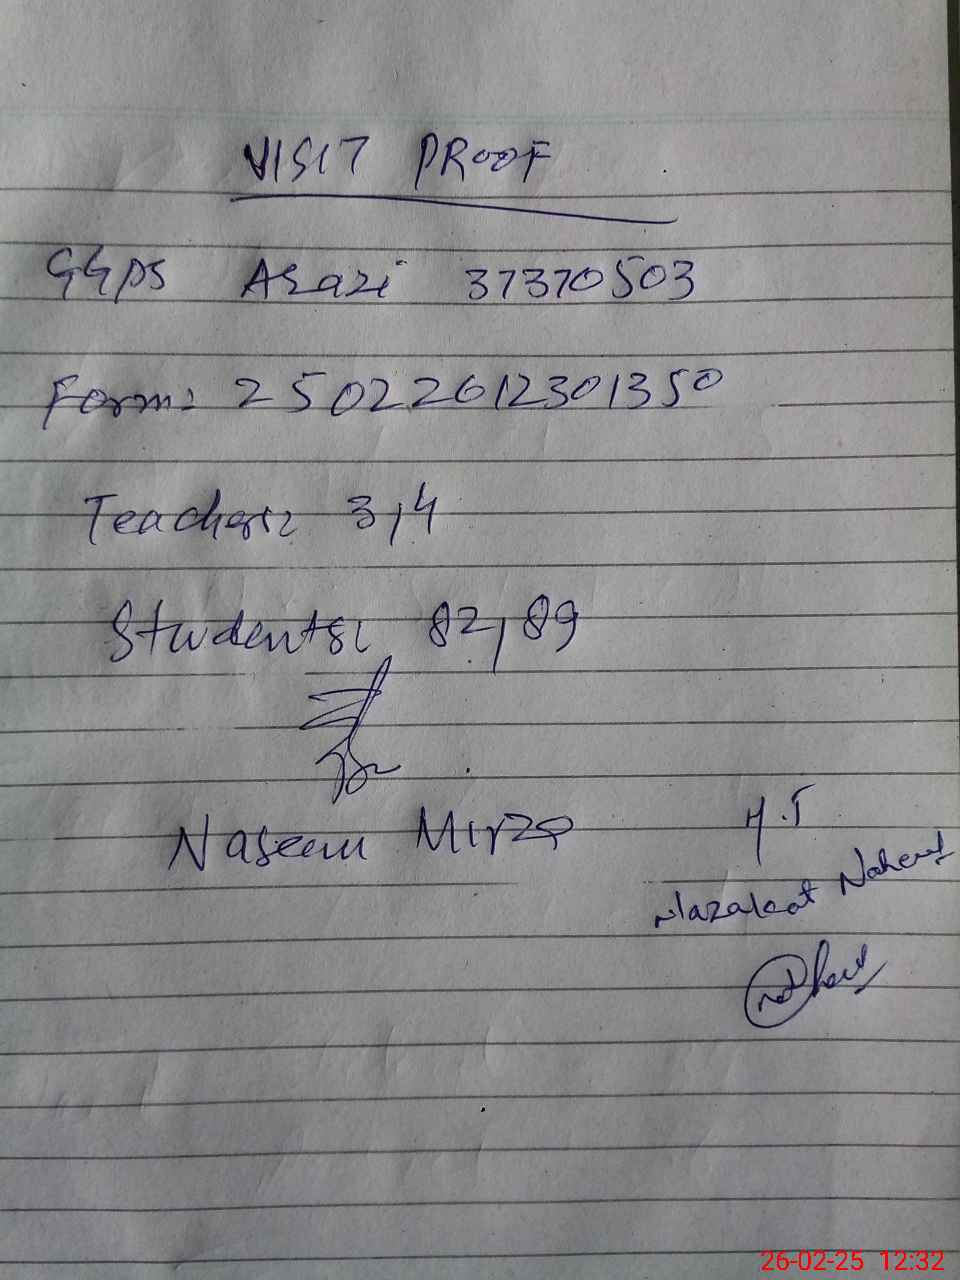 VISIT PROOF
GGPS Arazi 37370503
Form: 25022612301350
Teachers: 3,4
Students: 82,89
Naseem Mirza
H.T
Nazakat Naheed
26-02-25 12:32